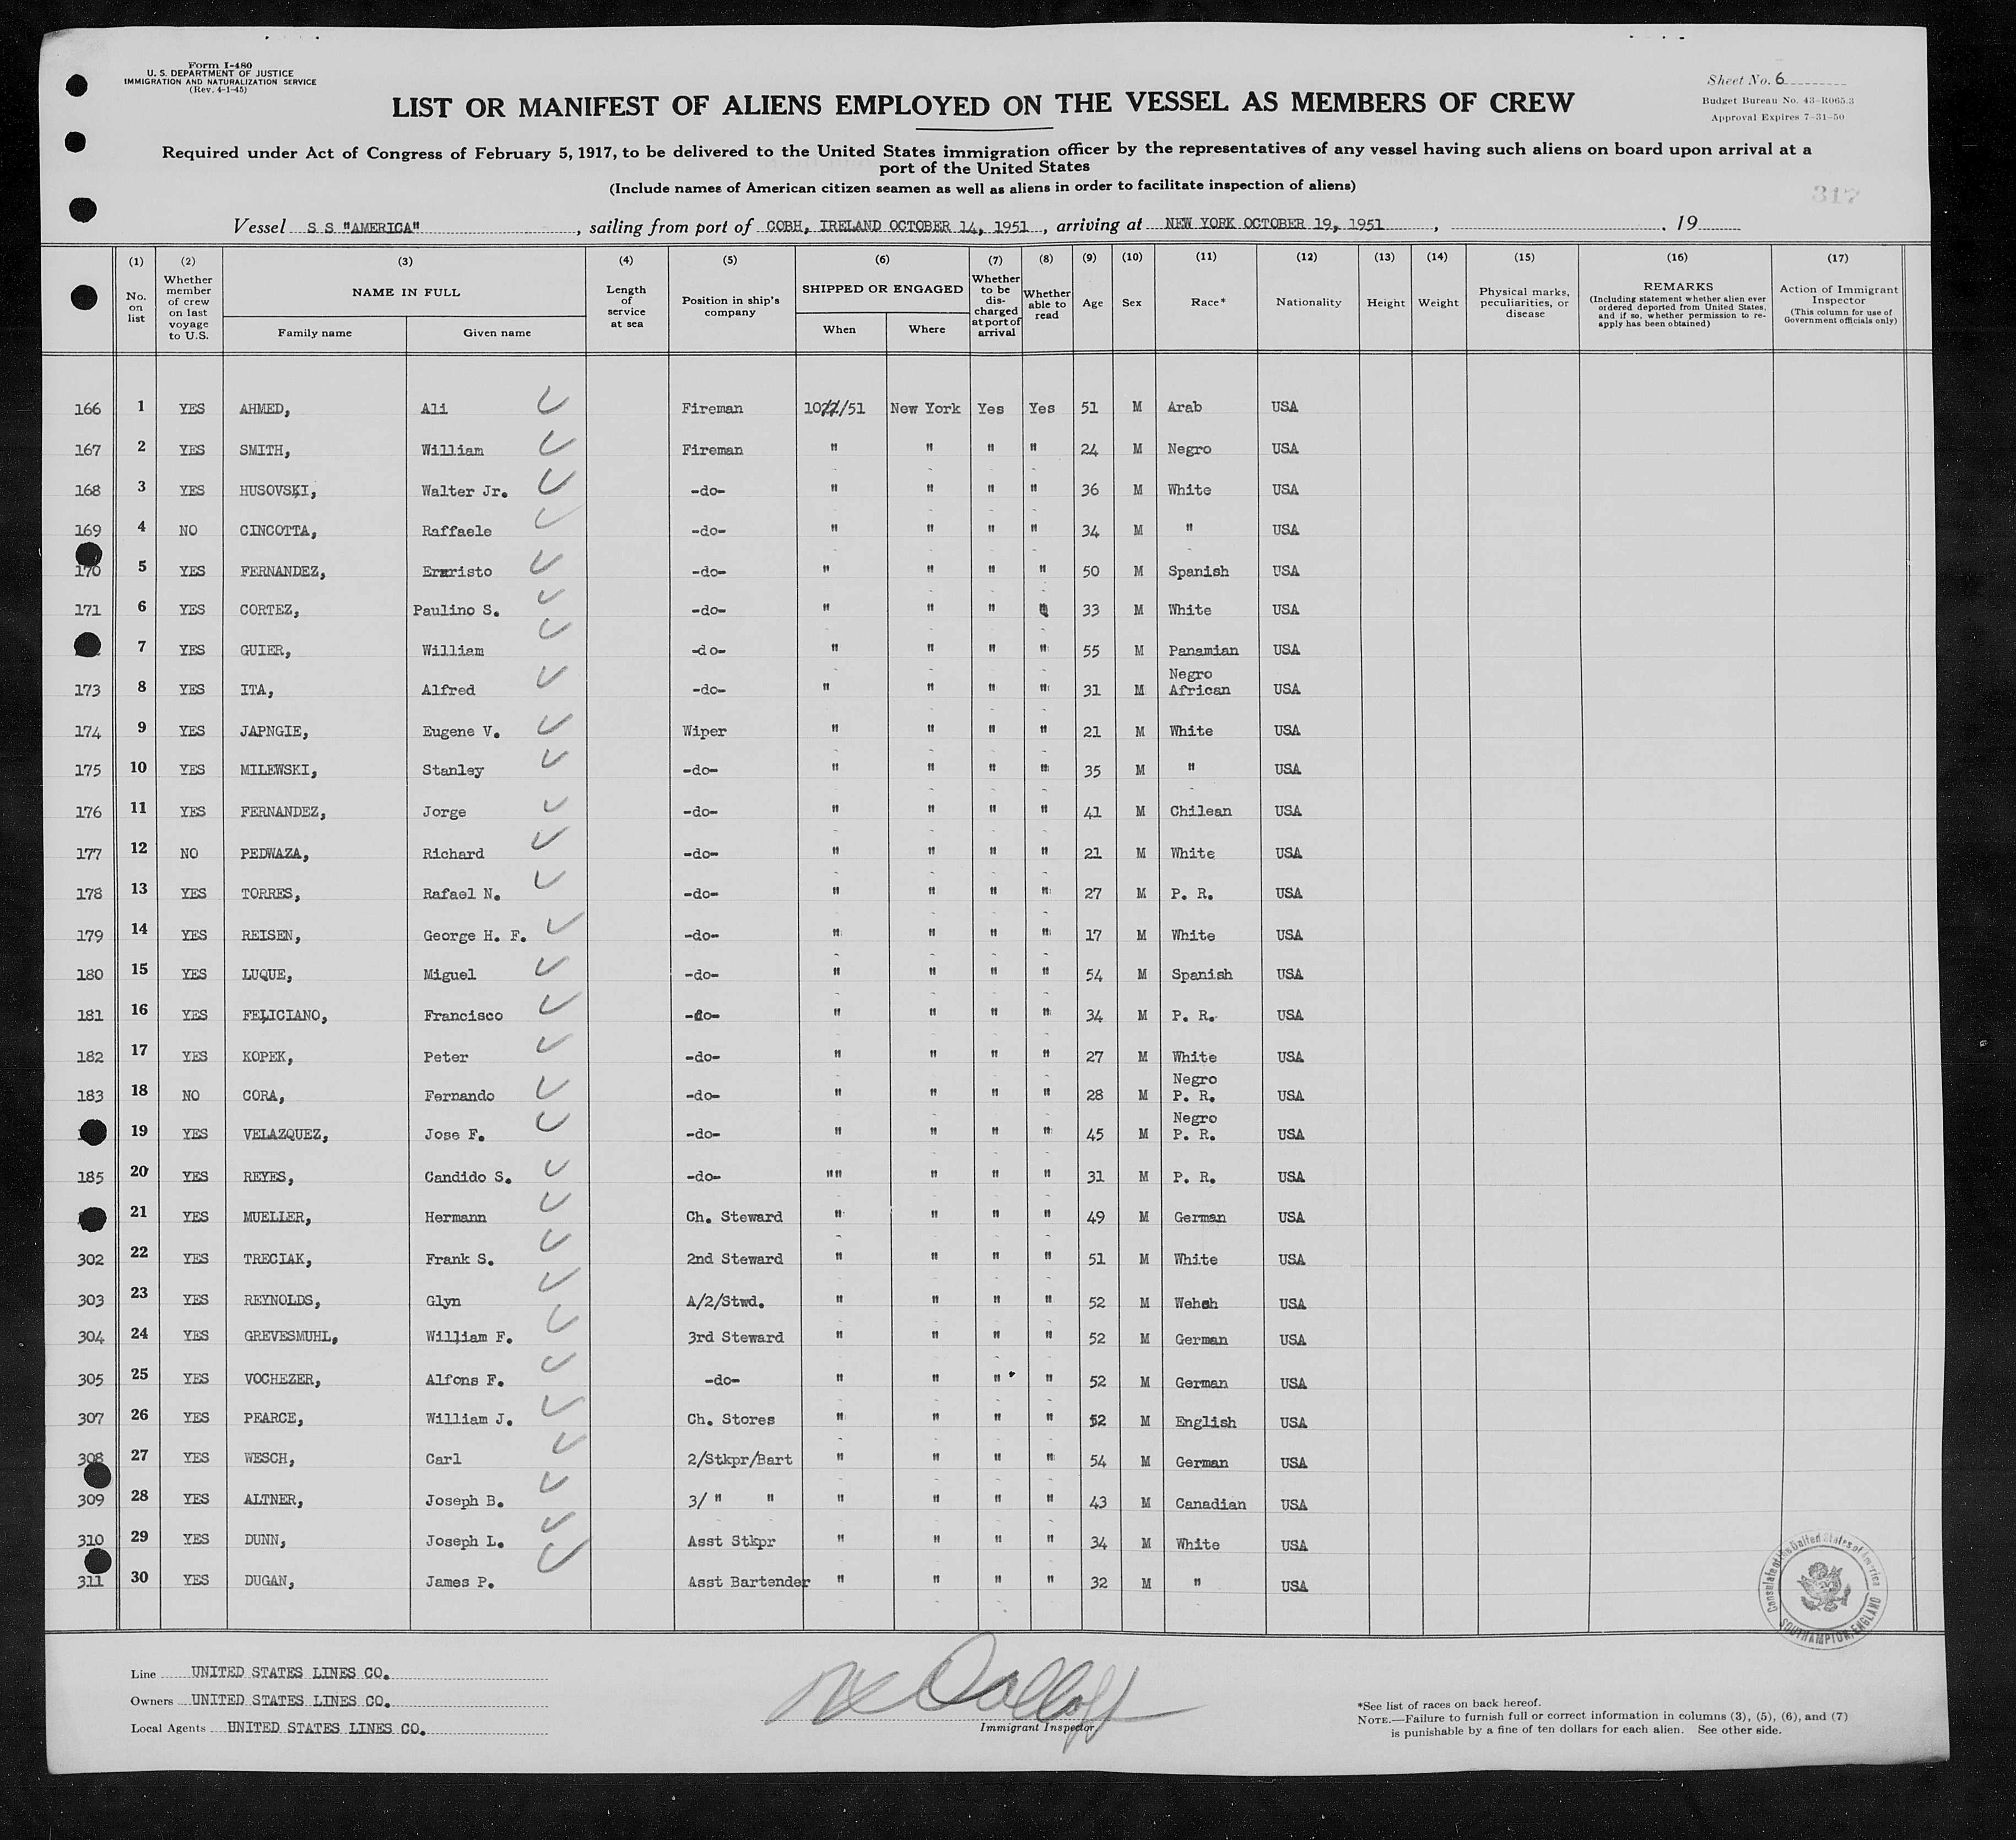 Form I-480
U. S. DEPARTMENT OF JUSTICE
IMMIGRATION AND NATURALIZATION SERVICE
(Rev. 4-1-45)
Sheet No. 6
Budget Bureau No. 43-R065.3
Approval Expires 7-31-50
LIST OR MANIFEST OF ALIENS EMPLOYED ON THE VESSEL AS MEMBERS OF CREW
Required under Act of Congress of February 5, 1917, to be delivered to the United States immigration officer by the representatives of any vessel having such aliens on board upon arrival at a
port of the United States
(Include names of American citizen seamen as well as aliens in order to facilitate inspection of aliens)
317
Vessel S S "AMERICA" , sailing from port of COBH, IRELAND OCTOBER 14, 1951 , arriving at NEW YORK OCTOBER 19, 1951 , . 19
(1) (2) (3) (4) (5) (6) (7) (8) (9) (10) (11) (12) (13) (14) (15) (16) (17)
No. on list
Whether member of crew on last voyage to U.S.
NAME IN FULL
Family name
Given name
Length of service at sea
Position in ship's company
SHIPPED OR ENGAGED
When
Where
Whether to be discharged at port of arrival
Whether able to read
Age
Sex
Race*
Nationality
Height
Weight
Physical marks, peculiarities, or disease
REMARKS
(Including statement whether alien ever ordered deported from United States, and if so, whether permission to reapply has been obtained)
Action of Immigrant Inspector
(This column for use of Government officials only)
166 1 YES AHMED, Ali Fireman /51 New York Yes Yes 51 M Arab USA
167 2 YES SMITH, William Fireman " " " " 24 M Negro USA
168 3 YES HUSOVSKI, Walter Jr. -do- " " " " 36 M White USA
169 4 NO CINCOTTA, Raffaele -do- " " " " 34 M " USA
170 5 YES FERNANDEZ, -do- " " " " 50 M Spanish USA
171 6 YES CORTEZ, Paulino S. -do- " " " 33 M White USA
7 YES GUIER, William -do- " " " " 55 M Panamian USA
173 8 YES ITA, Alfred -do- " " " " 31 M Negro African USA
174 9 YES JAPNGIE, Eugene V. Wiper " " " " 21 M White USA
175 10 YES MILEWSKI, Stanley -do- " " " " 35 M " USA
176 11 YES FERNANDEZ, Jorge -do- " " " " 41 M Chilean USA
177 12 NO PEDWAZA, Richard -do- " " " " 21 M White USA
178 13 YES TORRES, Rafael N. -do- " " " " 27 M P. R. USA
179 14 YES REISEN, George H. F. -do- " " " " 17 M White USA
180 15 YES LUQUE, Miguel -do- " " " " 54 M Spanish USA
181 16 YES FELICIANO, Francisco -do- " " " " 34 M P. R. USA
182 17 YES KOPEK, Peter -do- " " " " 27 M White USA
183 18 NO CORA, Fernando -do- " " " " 28 M Negro P. R. USA
19 YES VELAZQUEZ, Jose F. -do- " " " " 45 M Negro P. R. USA
185 20 YES REYES, Candido S. -do- "" " " " 31 M P. R. USA
21 YES MUELLER, Hermann Ch. Steward " " " " 49 M German USA
302 22 YES TRECIAK, Frank S. 2nd Steward " " " " 51 M White USA
303 23 YES REYNOLDS, Glyn A/2/Stwd. " " " " 52 M USA
304 24 YES GREVESMUHL, William F. 3rd Steward " " " " 52 M German USA
305 25 YES VOCHEZER, Alfons F. -do- " " " " 52 M German USA
307 26 YES PEARCE, William J. Ch. Stores " " " " 52 M English USA
308 27 YES WESCH, Carl 2/Stkpr/Bart " " " " 54 M German USA
309 28 YES ALTNER, Joseph B. 3/ " " " " " " 43 M Canadian USA
310 29 YES DUNN, Joseph L. Asst Stkpr " " " " 34 M White USA
311 30 YES DUGAN, James P. Asst Bartender " " " " 32 M " USA
Consulate of the United States of America
SOUTHAMPTON, ENGLAND
Line UNITED STATES LINES CO.
Owners UNITED STATES LINES CO.
Local Agents UNITED STATES LINES CO.
Immigrant Inspector
*See list of races on back hereof.
NOTE.—Failure to furnish full or correct information in columns (3), (5), (6), and (7)
is punishable by a fine of ten dollars for each alien. See other side.